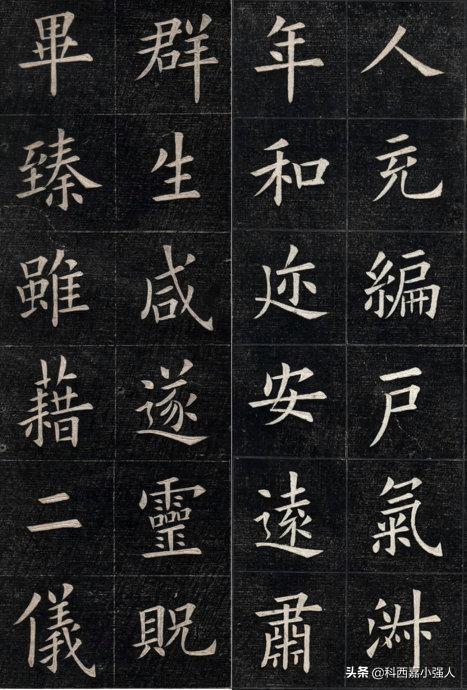 人充編戸氣淑
年和迩安遠肅
群生咸遂靈貺
畢臻雖藉二儀
头条 @科西嘉小强人